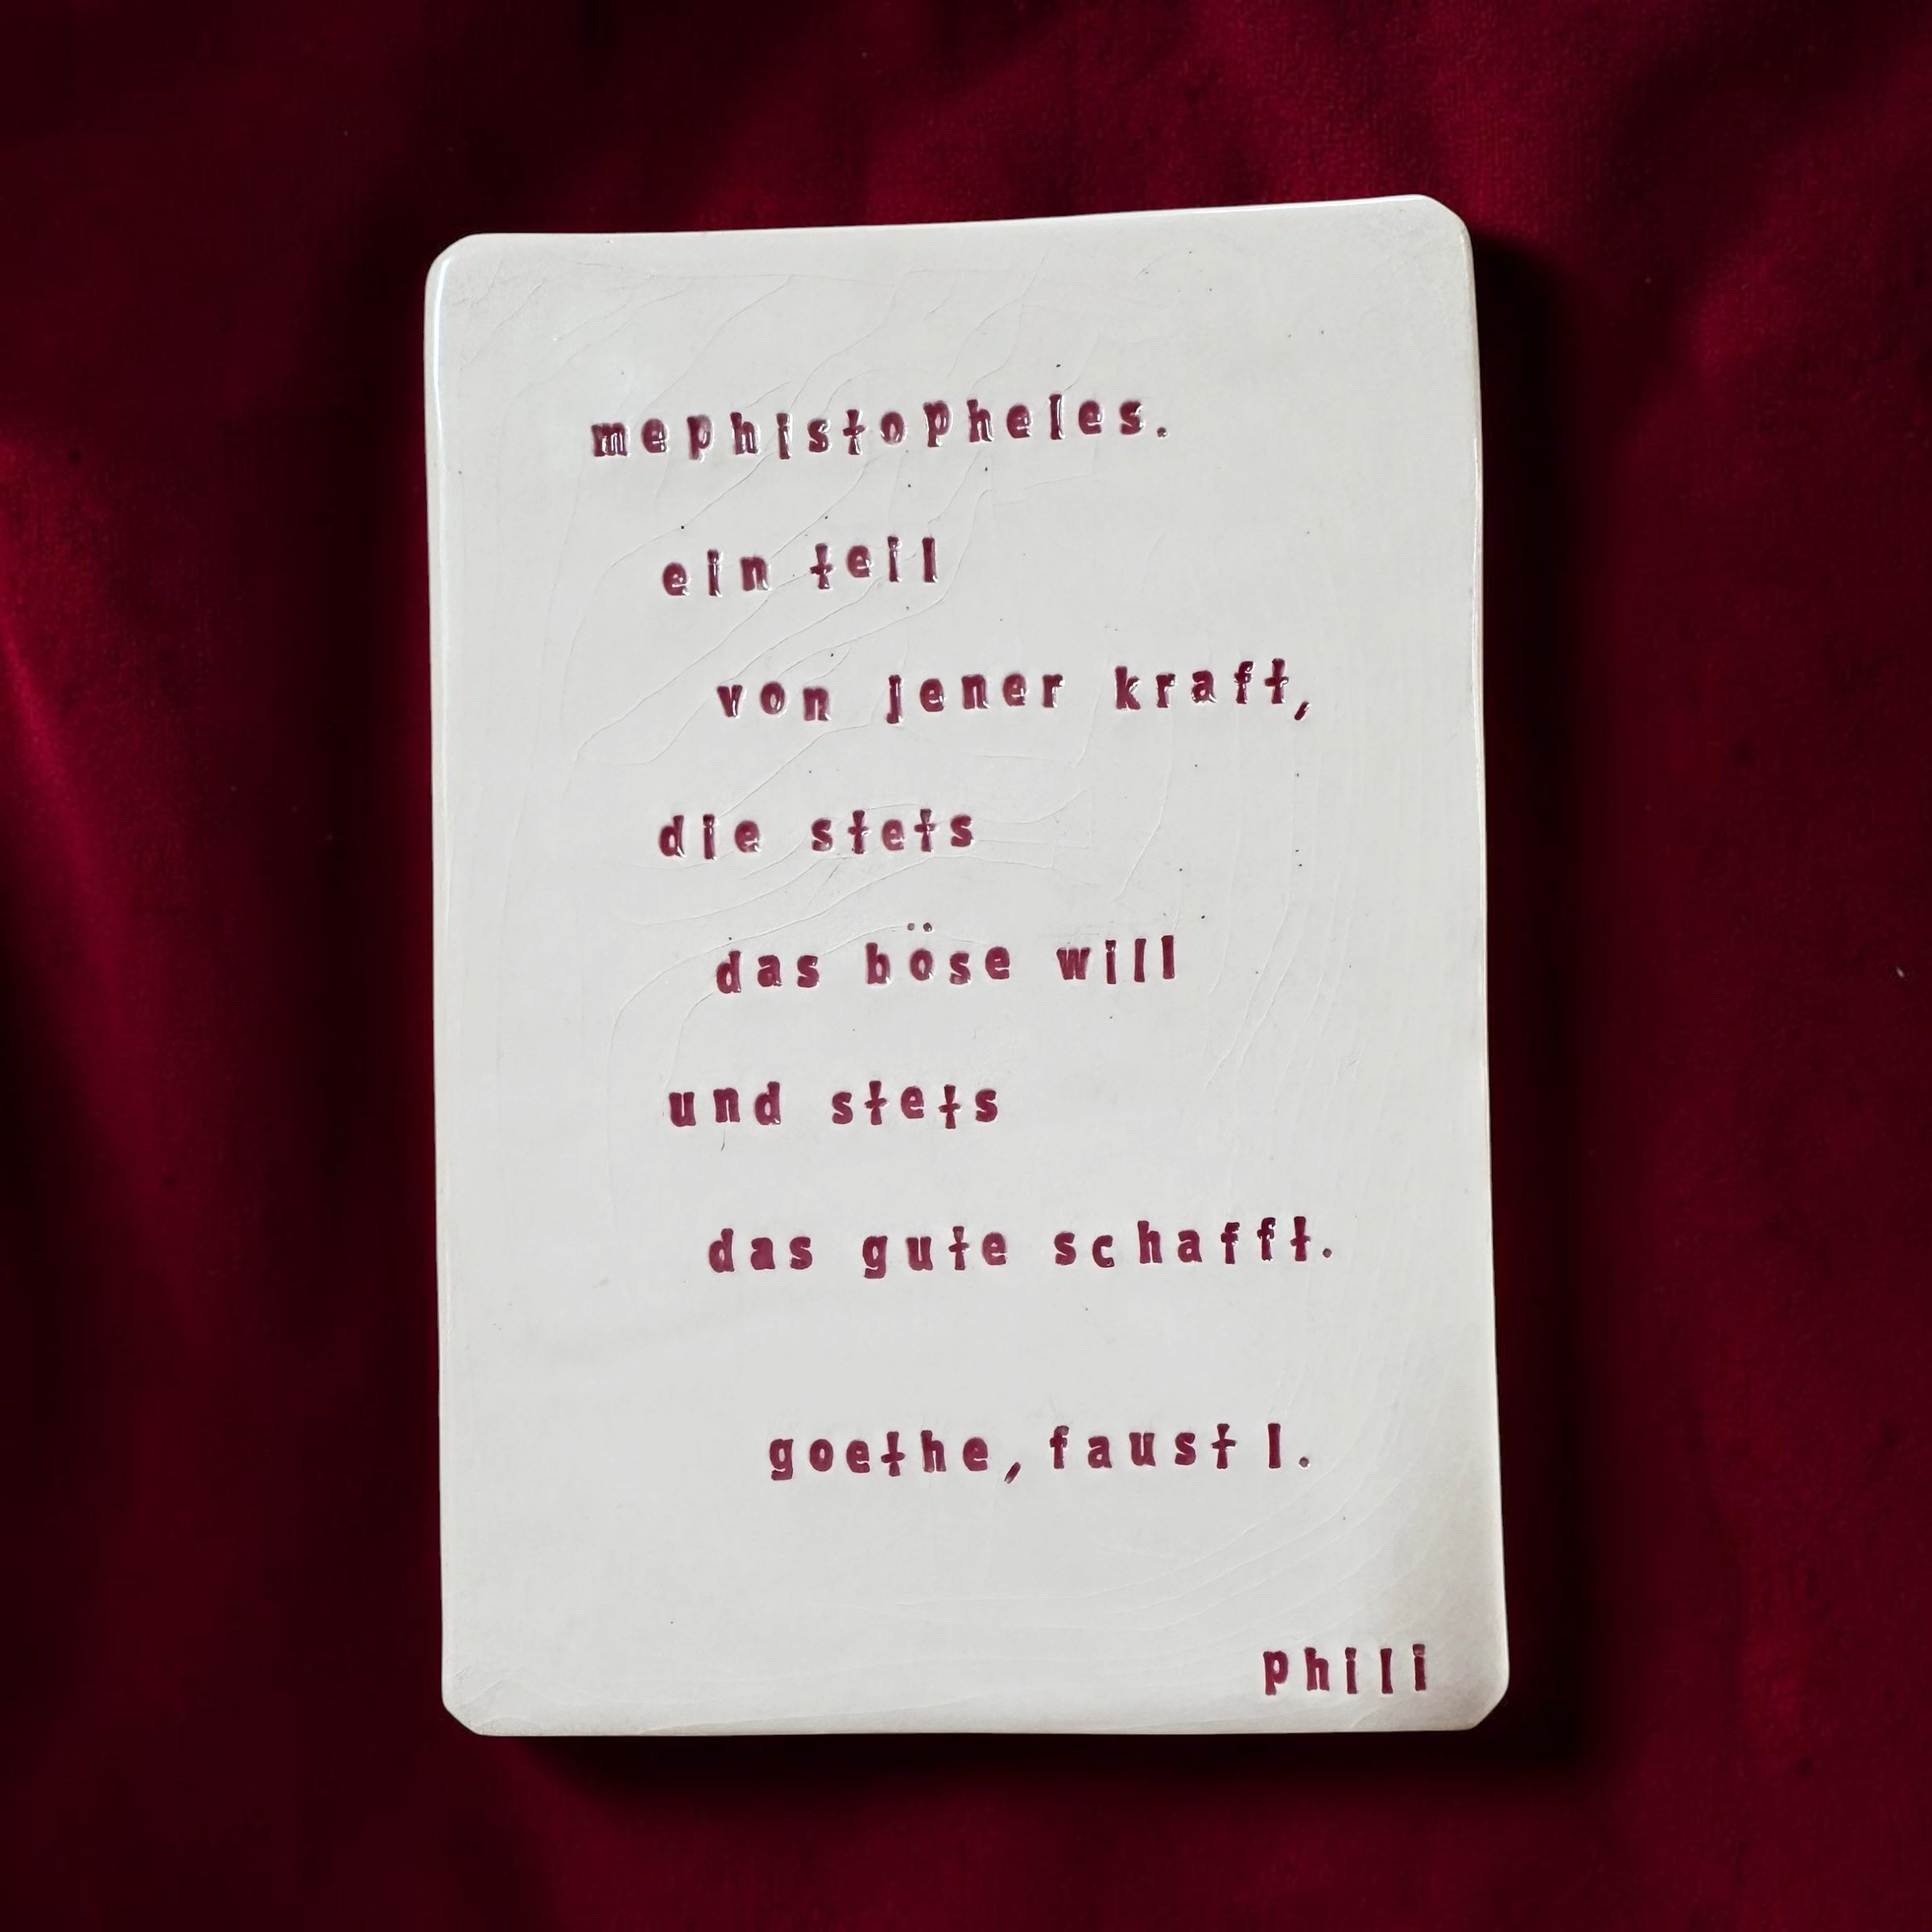 mephistopheles.
ein teil
von jener kraft,
die stets
das böse will
und stets
das gute schafft.
goethe, faust I.
phili